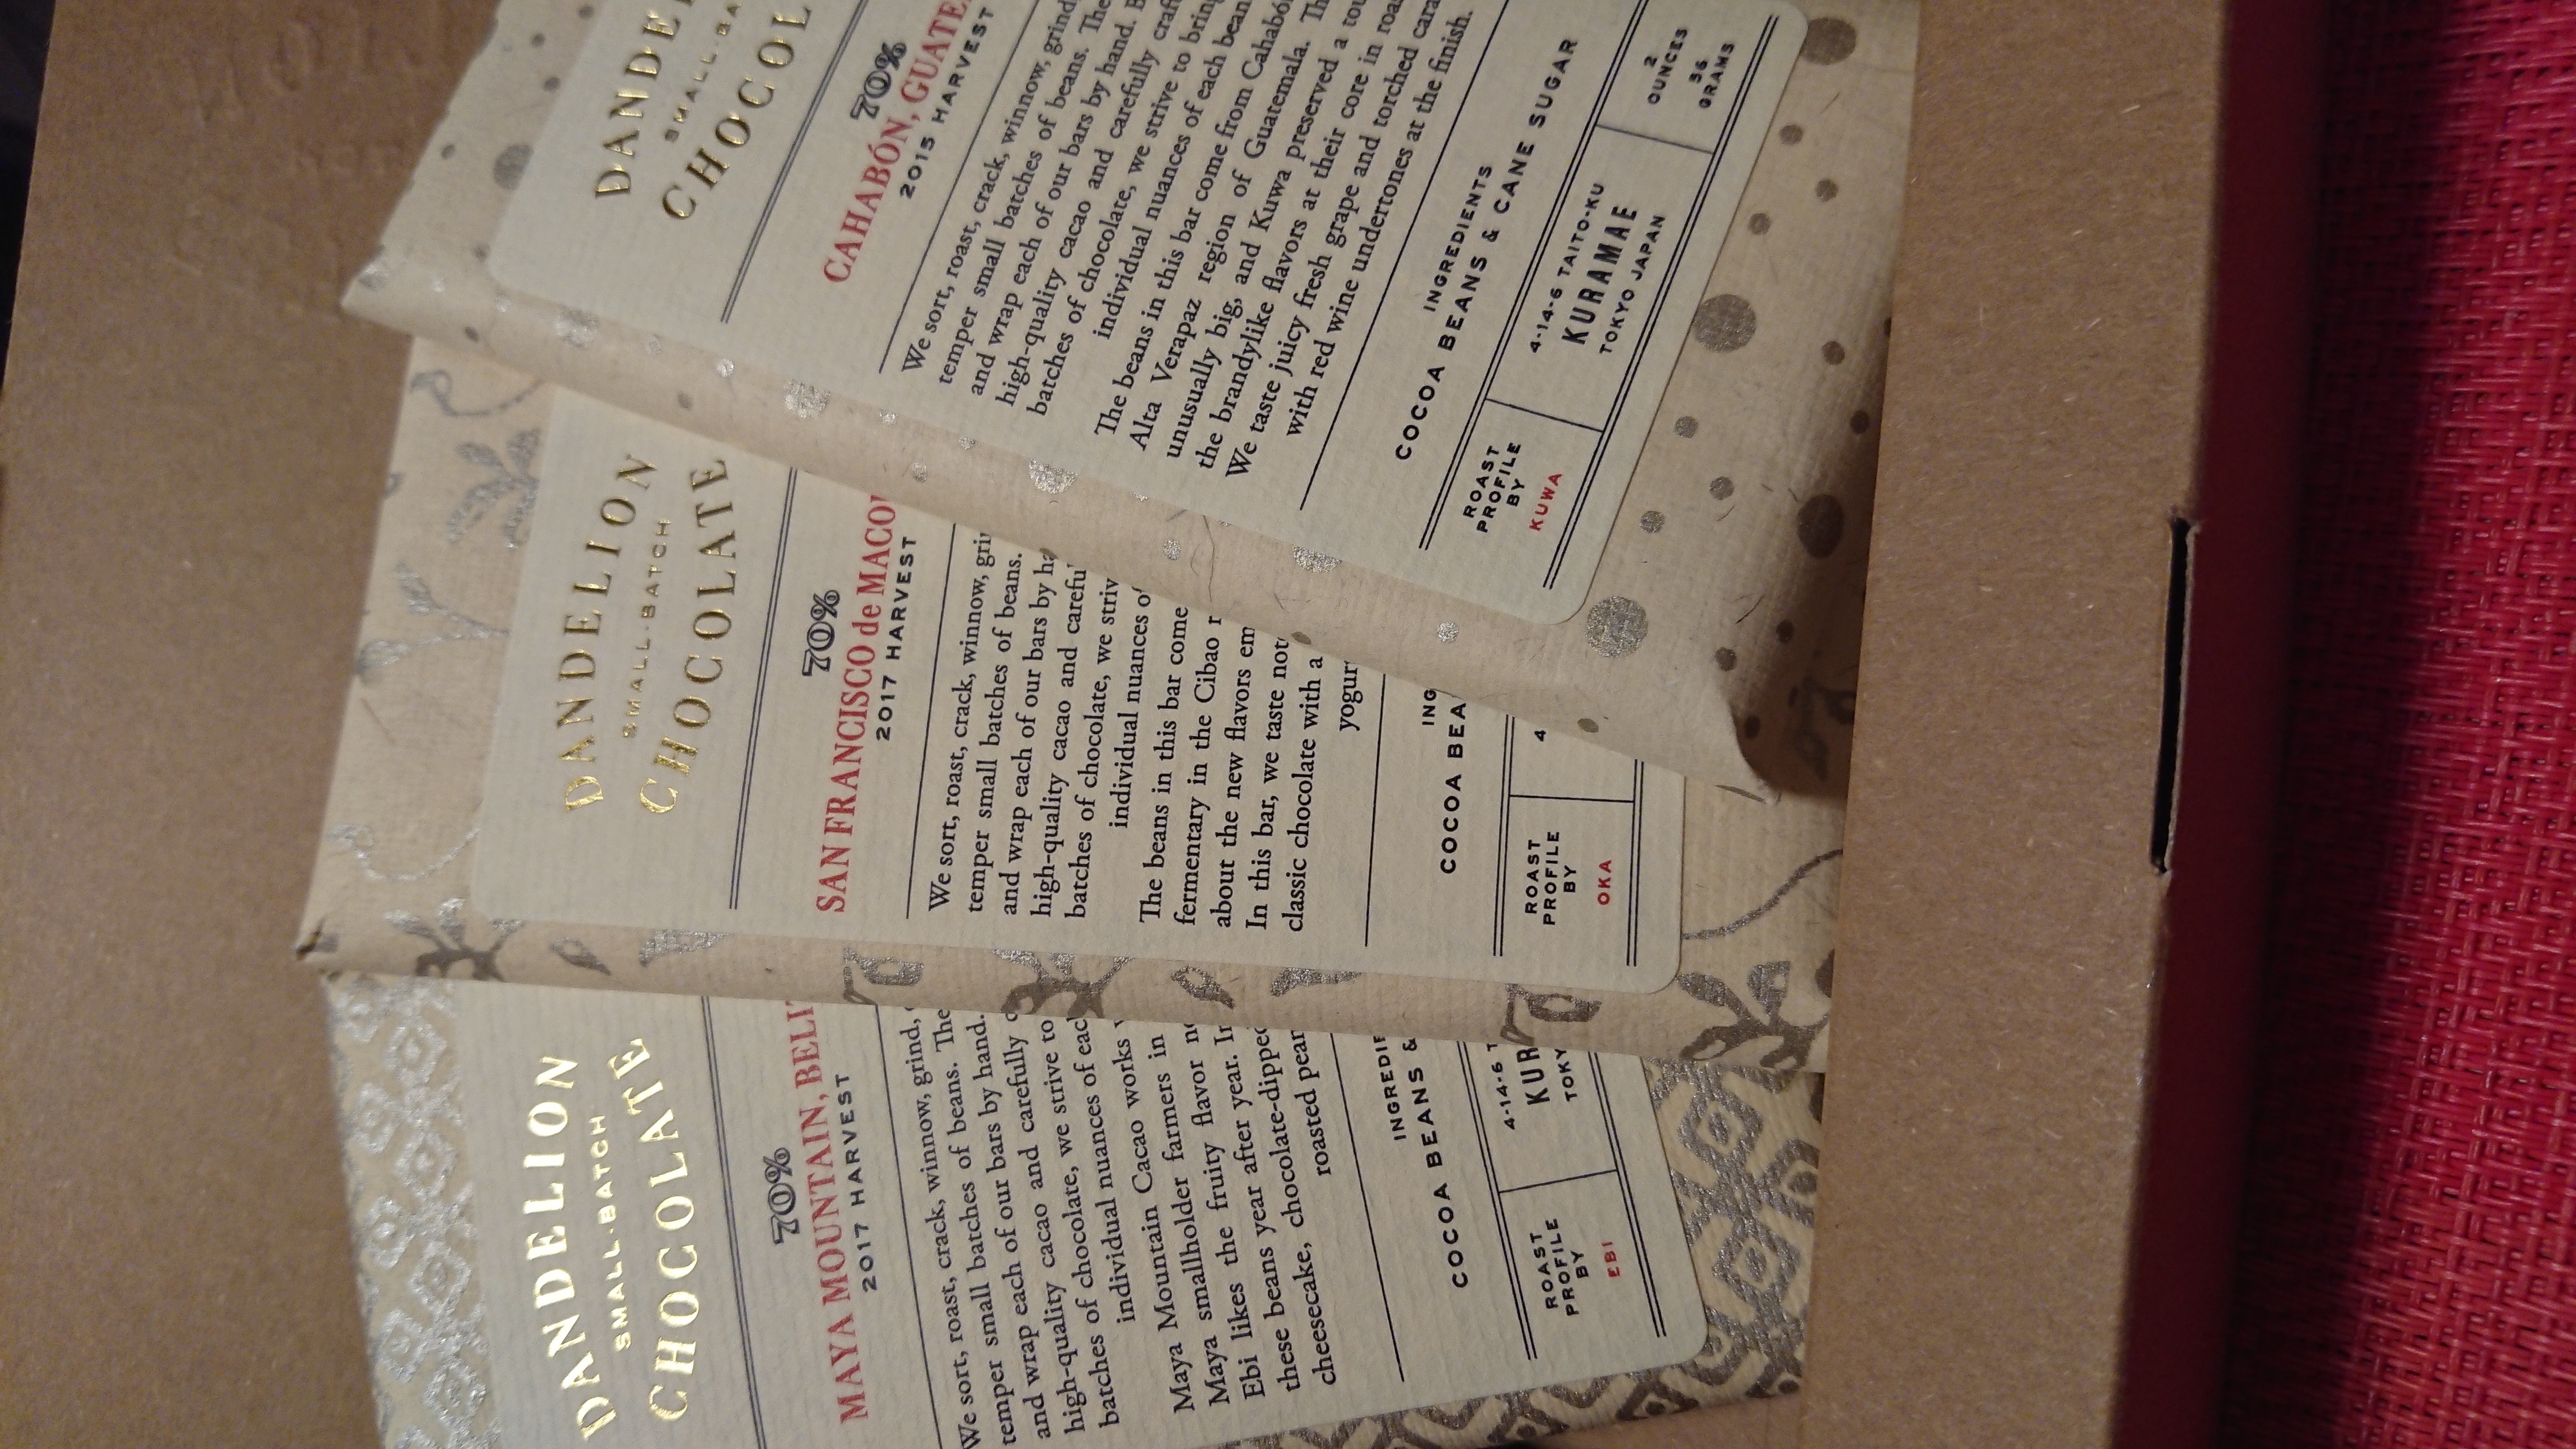 DANDELION
SMALL-BATCH
CHOCOLATE
70%
MAYA MOUNTAIN,
2017 HARVEST
We sort, roast, crack, winnow, grind,
temper small batches of beans. The
and wrap each of our bars by hand.
high-quality cacao and carefully
batches of chocolate, we strive to
individual nuances of
Maya Mountain Cacao works
Maya smallholder farmers in
Ebi likes the fruity flavor
these beans year after year.
cheesecake, chocolate-dipped
roasted
COCOA BEANS &
ROAST
PROFILE
BY
EBI
4-14-6
DANDELION
SMALL-BATCH
CHOCOLATE
70%
SAN FRANCISCO de
2017 HARVEST
We sort, roast, crack, winnow,
temper small batches of beans.
and wrap each of our bars by
high-quality cacao and
batches of chocolate, we
individual nuances
The beans in this bar come
fermentary in the Cibao
about the new flavors
In this bar, we taste
classic chocolate with a
COCOA
ROAST
PROFILE
BY
OKA
4
SMALL
70%
CAHABÓN,
2015 HARVEST
We sort, roast, crack, winnow, grind,
temper small batches of beans. The
and wrap each of our bars by hand.
high-quality cacao and carefully
batches of chocolate, we strive to
individual nuances of each bean
The beans in this bar come from
Alta Verapaz region of Guatemala.
unusually big, and Kuwa preserved a
the brandylike flavors at their core in
We taste juicy fresh grape and torched
with red wine undertones at the finish.
INGREDIENTS
COCOA BEANS & CANE SUGAR
ROAST
PROFILE
BY
KUWA
4-14-6 TAITO-KU
KURAMAE
TOKYO JAPAN
2
OUNCES
56
GRAMS